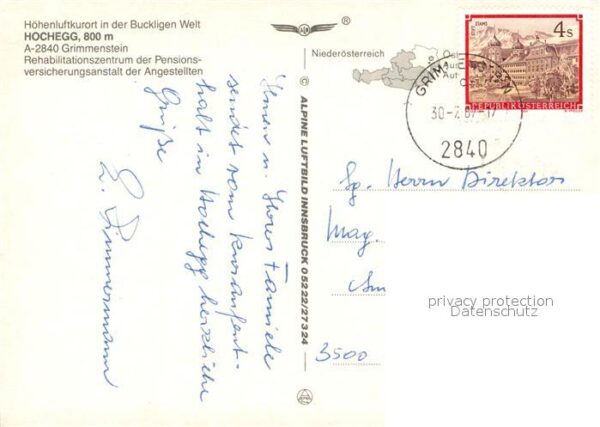 Höhenluftkurort in der Buckligen Welt
HOCHEGG, 800 m
A-2840 Grimmenstein
Rehabilitationszentrum der Pensions-
versicherungsanstalt der Angestellten
Ihnen u. Ihrer Familie
sendet vom Kuraufent-
halt in Hochegg herzliche
Grüße
Zimmermann
© ALPINE LUFTBILD INNSBRUCK 05222/27324
Niederösterreich
STIFT STAMS
4 S
REPUBLIK ÖSTERREICH
2840
Sg. Herrn Direktor
Mag.
3500
privacy protection
Datenschutz